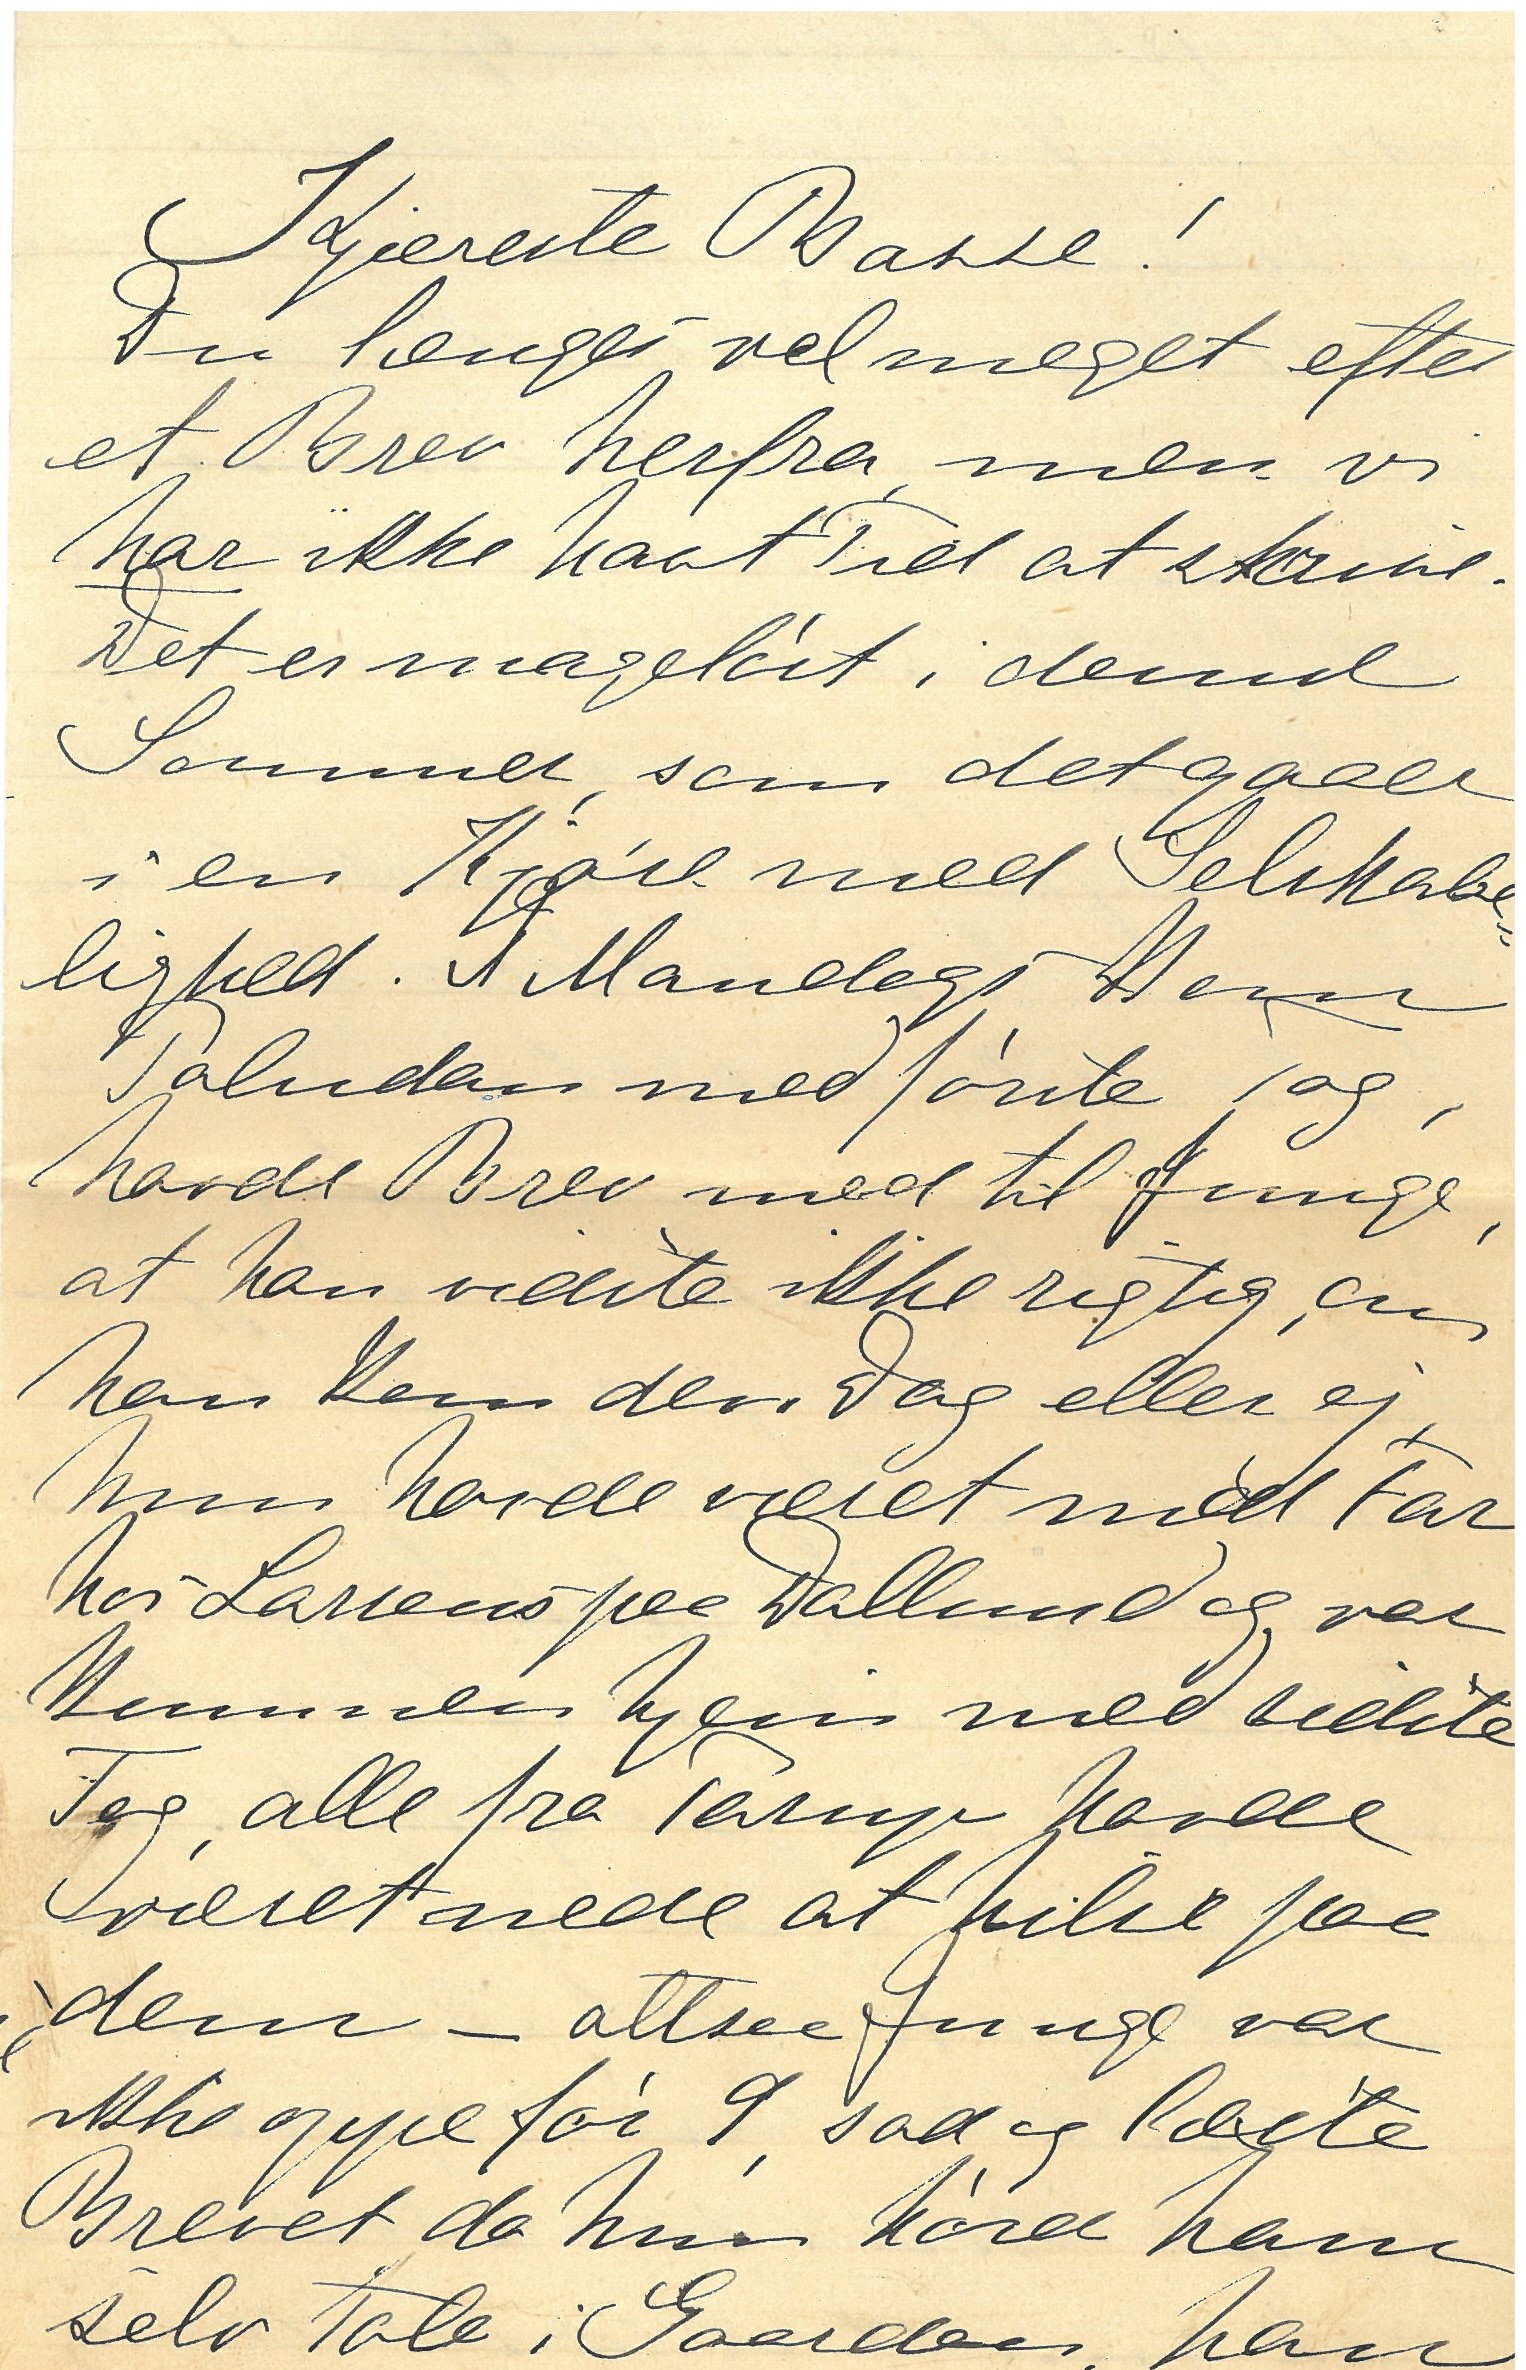 Kjæreste Basse!
Du længes vel meget efter
et Brev herfra, men vi
har ikke havt Tid at skrive.
Det er mageløst i denne
Sommer, som det gaaer
i en Kjøre med Selskabe-
lighed. I Mandags kom
Paludan med første Tog,
havde Brev med til Junge,
at han vidste ikke rigtig, om
han kom den Dag eller ej,
hun havde været med Far
hos Larsens paa Dallund og var
kommen hjem med sidste
Tog, alle fra Tarup havde
været nede at hilse paa
dem — altsaa Junge var
ikke oppe før 9, sad og læste
Brevet da hun hørd ham
selv tale i Gaarden, han